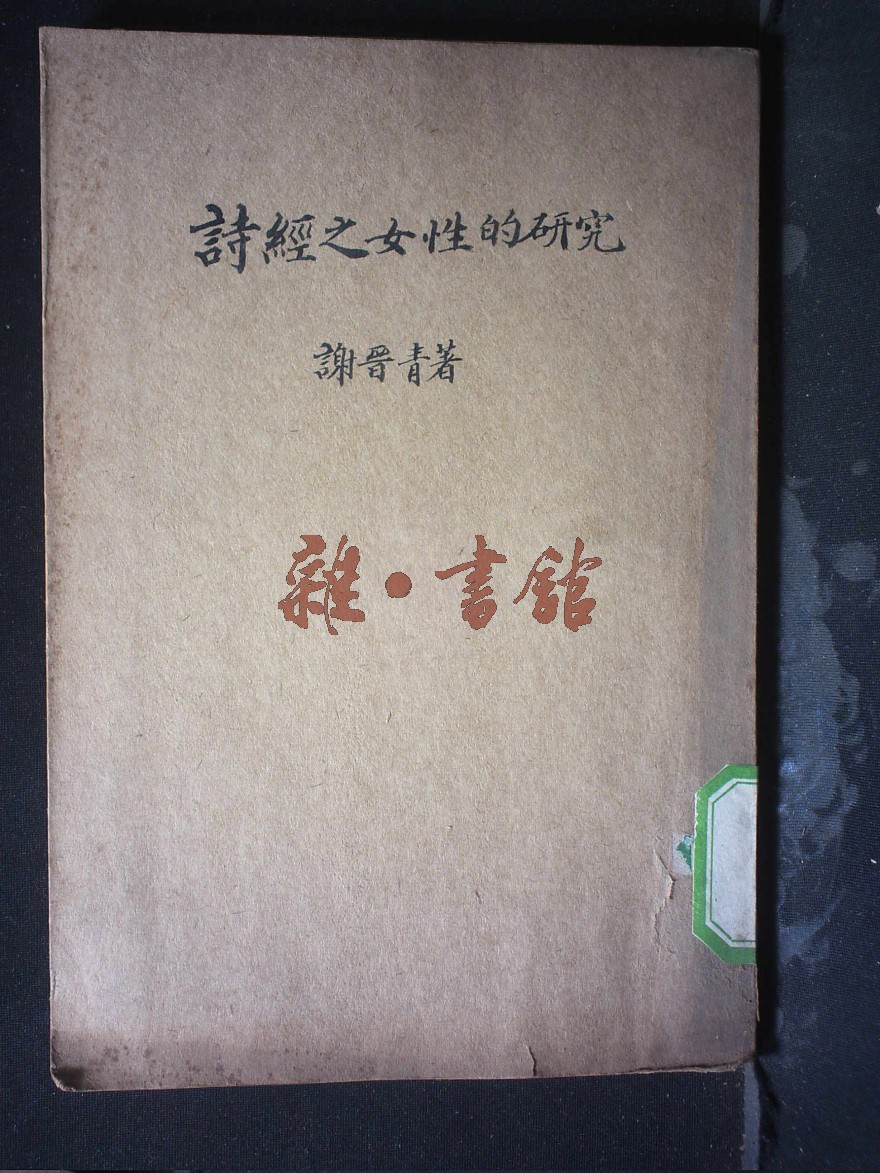 詩經之女性的研究
謝晉青著
雜·書館